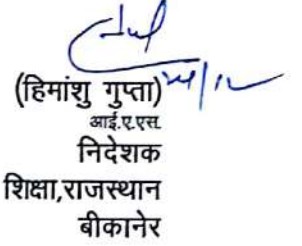 (हिमांशु गुप्ता)
आई.ए.एस.
निदेशक
शिक्षा,राजस्थान
बीकानेर